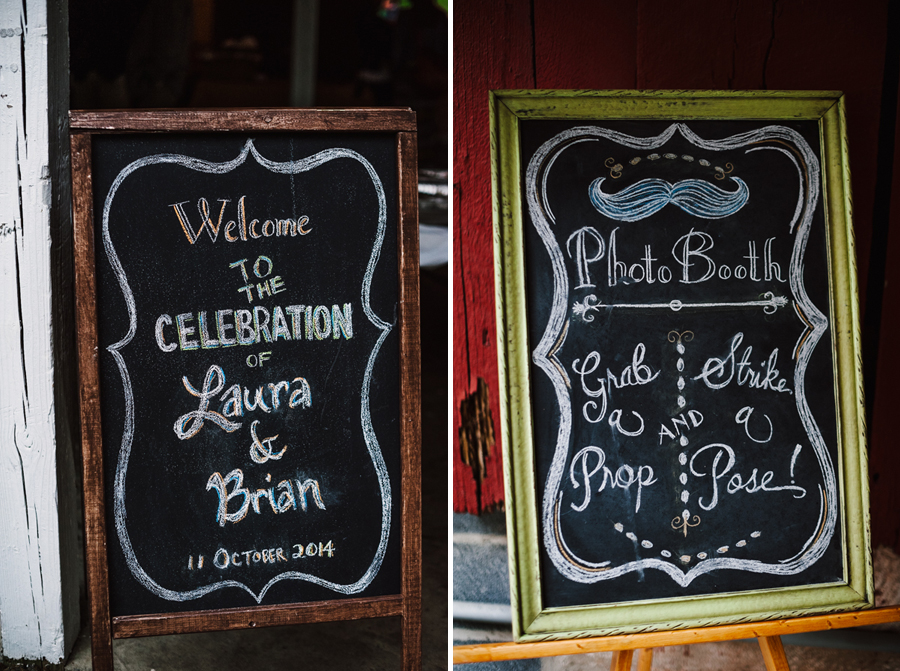 Welcome
TO
THE
CELEBRATION
OF
Laura
&
Brian
11 OCTOBER 2014
Photo Booth
Grab
a
Prop
AND
Strike
a
Pose!